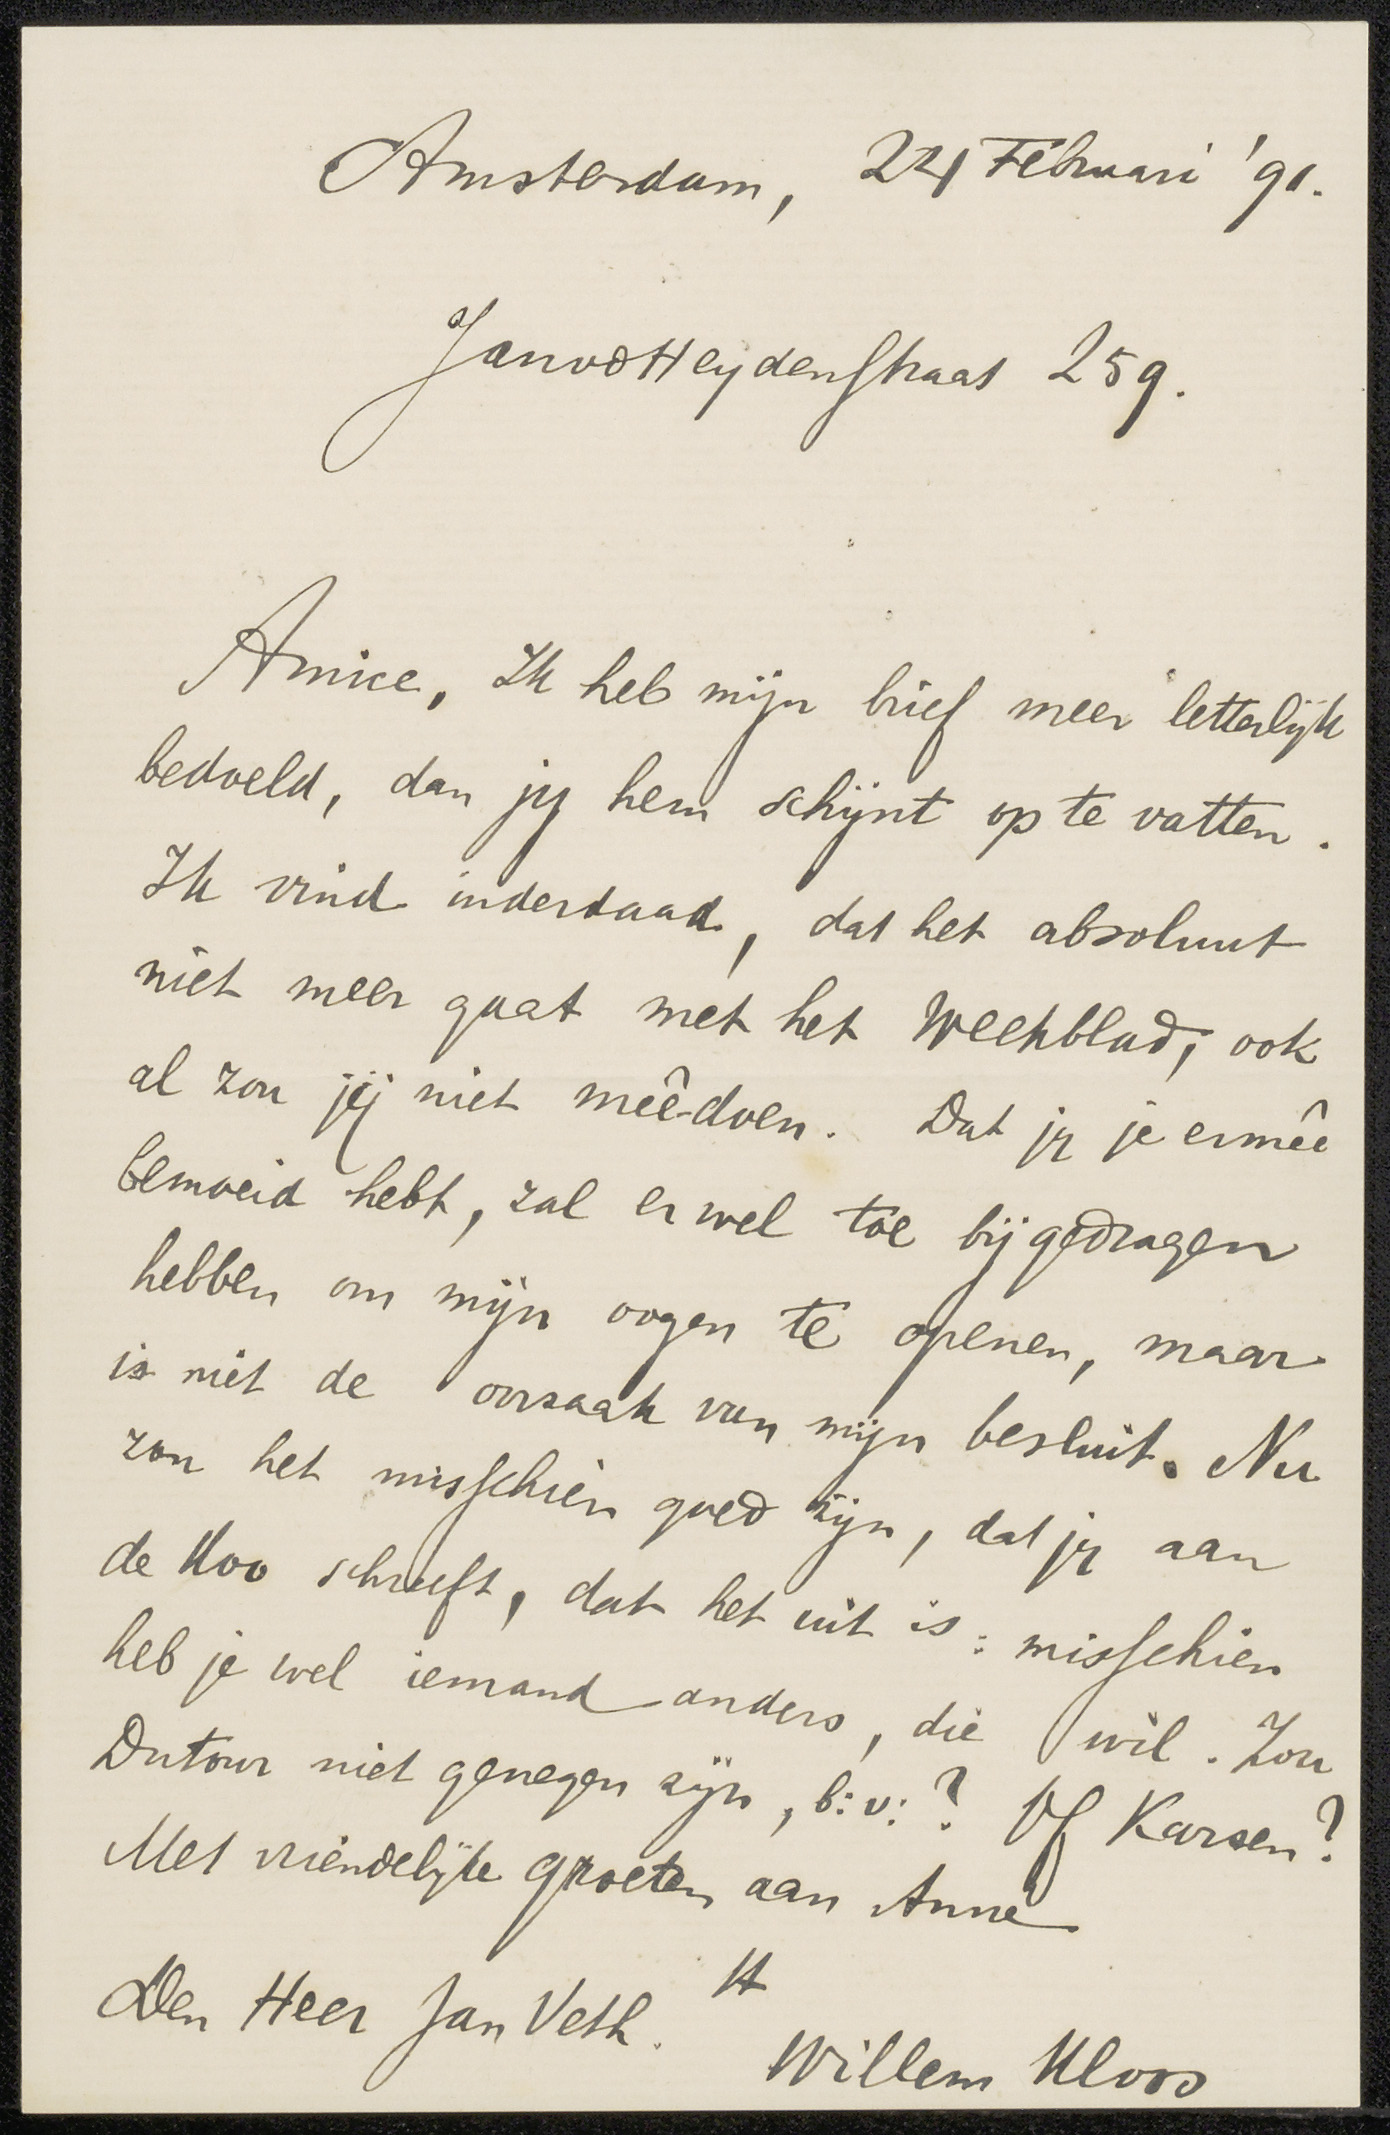 Amsterdam, 24 Februari '91.
Jan vd Heydenstraat 259.
Amice, Ik heb mijn brief meer letterlijk
bedoeld, dan jij hem schijnt op te vatten.
Ik vind inderdaad, dat het absoluut
niet meer gaat met het Weekblad, ook
al zou jij niet meê-doen. Dat jij je ermeê
bemoeid hebt, zal er wel toe bijgedragen
hebben om mijn oogen te openen, maar
is niet de oorzaak van mijn besluit. Nu
zou het misschien goed zijn, dat jij aan
de Koo schreeft, dat het uit is: misschien
heb je wel iemand anders, die wil. Zou
Dutour niet genegen zijn, b:v:? Of Karsen?
Met vriendelijke groeten aan Anna
tt
Den Heer Jan Veth.
Willem Kloos